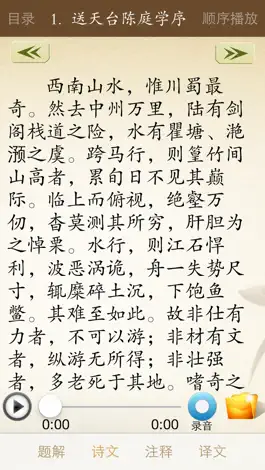 目录 1. 送天台陈庭学序 顺序播放
西南山水，惟川蜀最
奇。然去中州万里，陆有剑
阁栈道之险，水有瞿塘、滟
滪之虞。跨马行，则篁竹间
山高者，累旬日不见其巅
际。临上而俯视，绝壑万
仞，杳莫测其所穷，肝胆为
之悼栗。水行，则江石悍
利，波恶涡诡，舟一失势尺
寸，辄糜碎土沉，下饱鱼
鳖。其难至如此。故非仕有
力者，不可以游；非材有文
者，纵游无所得；非壮强
者，多老死于其地。嗜奇之
0:00 0:00 录音
题解 诗文 注释 译文